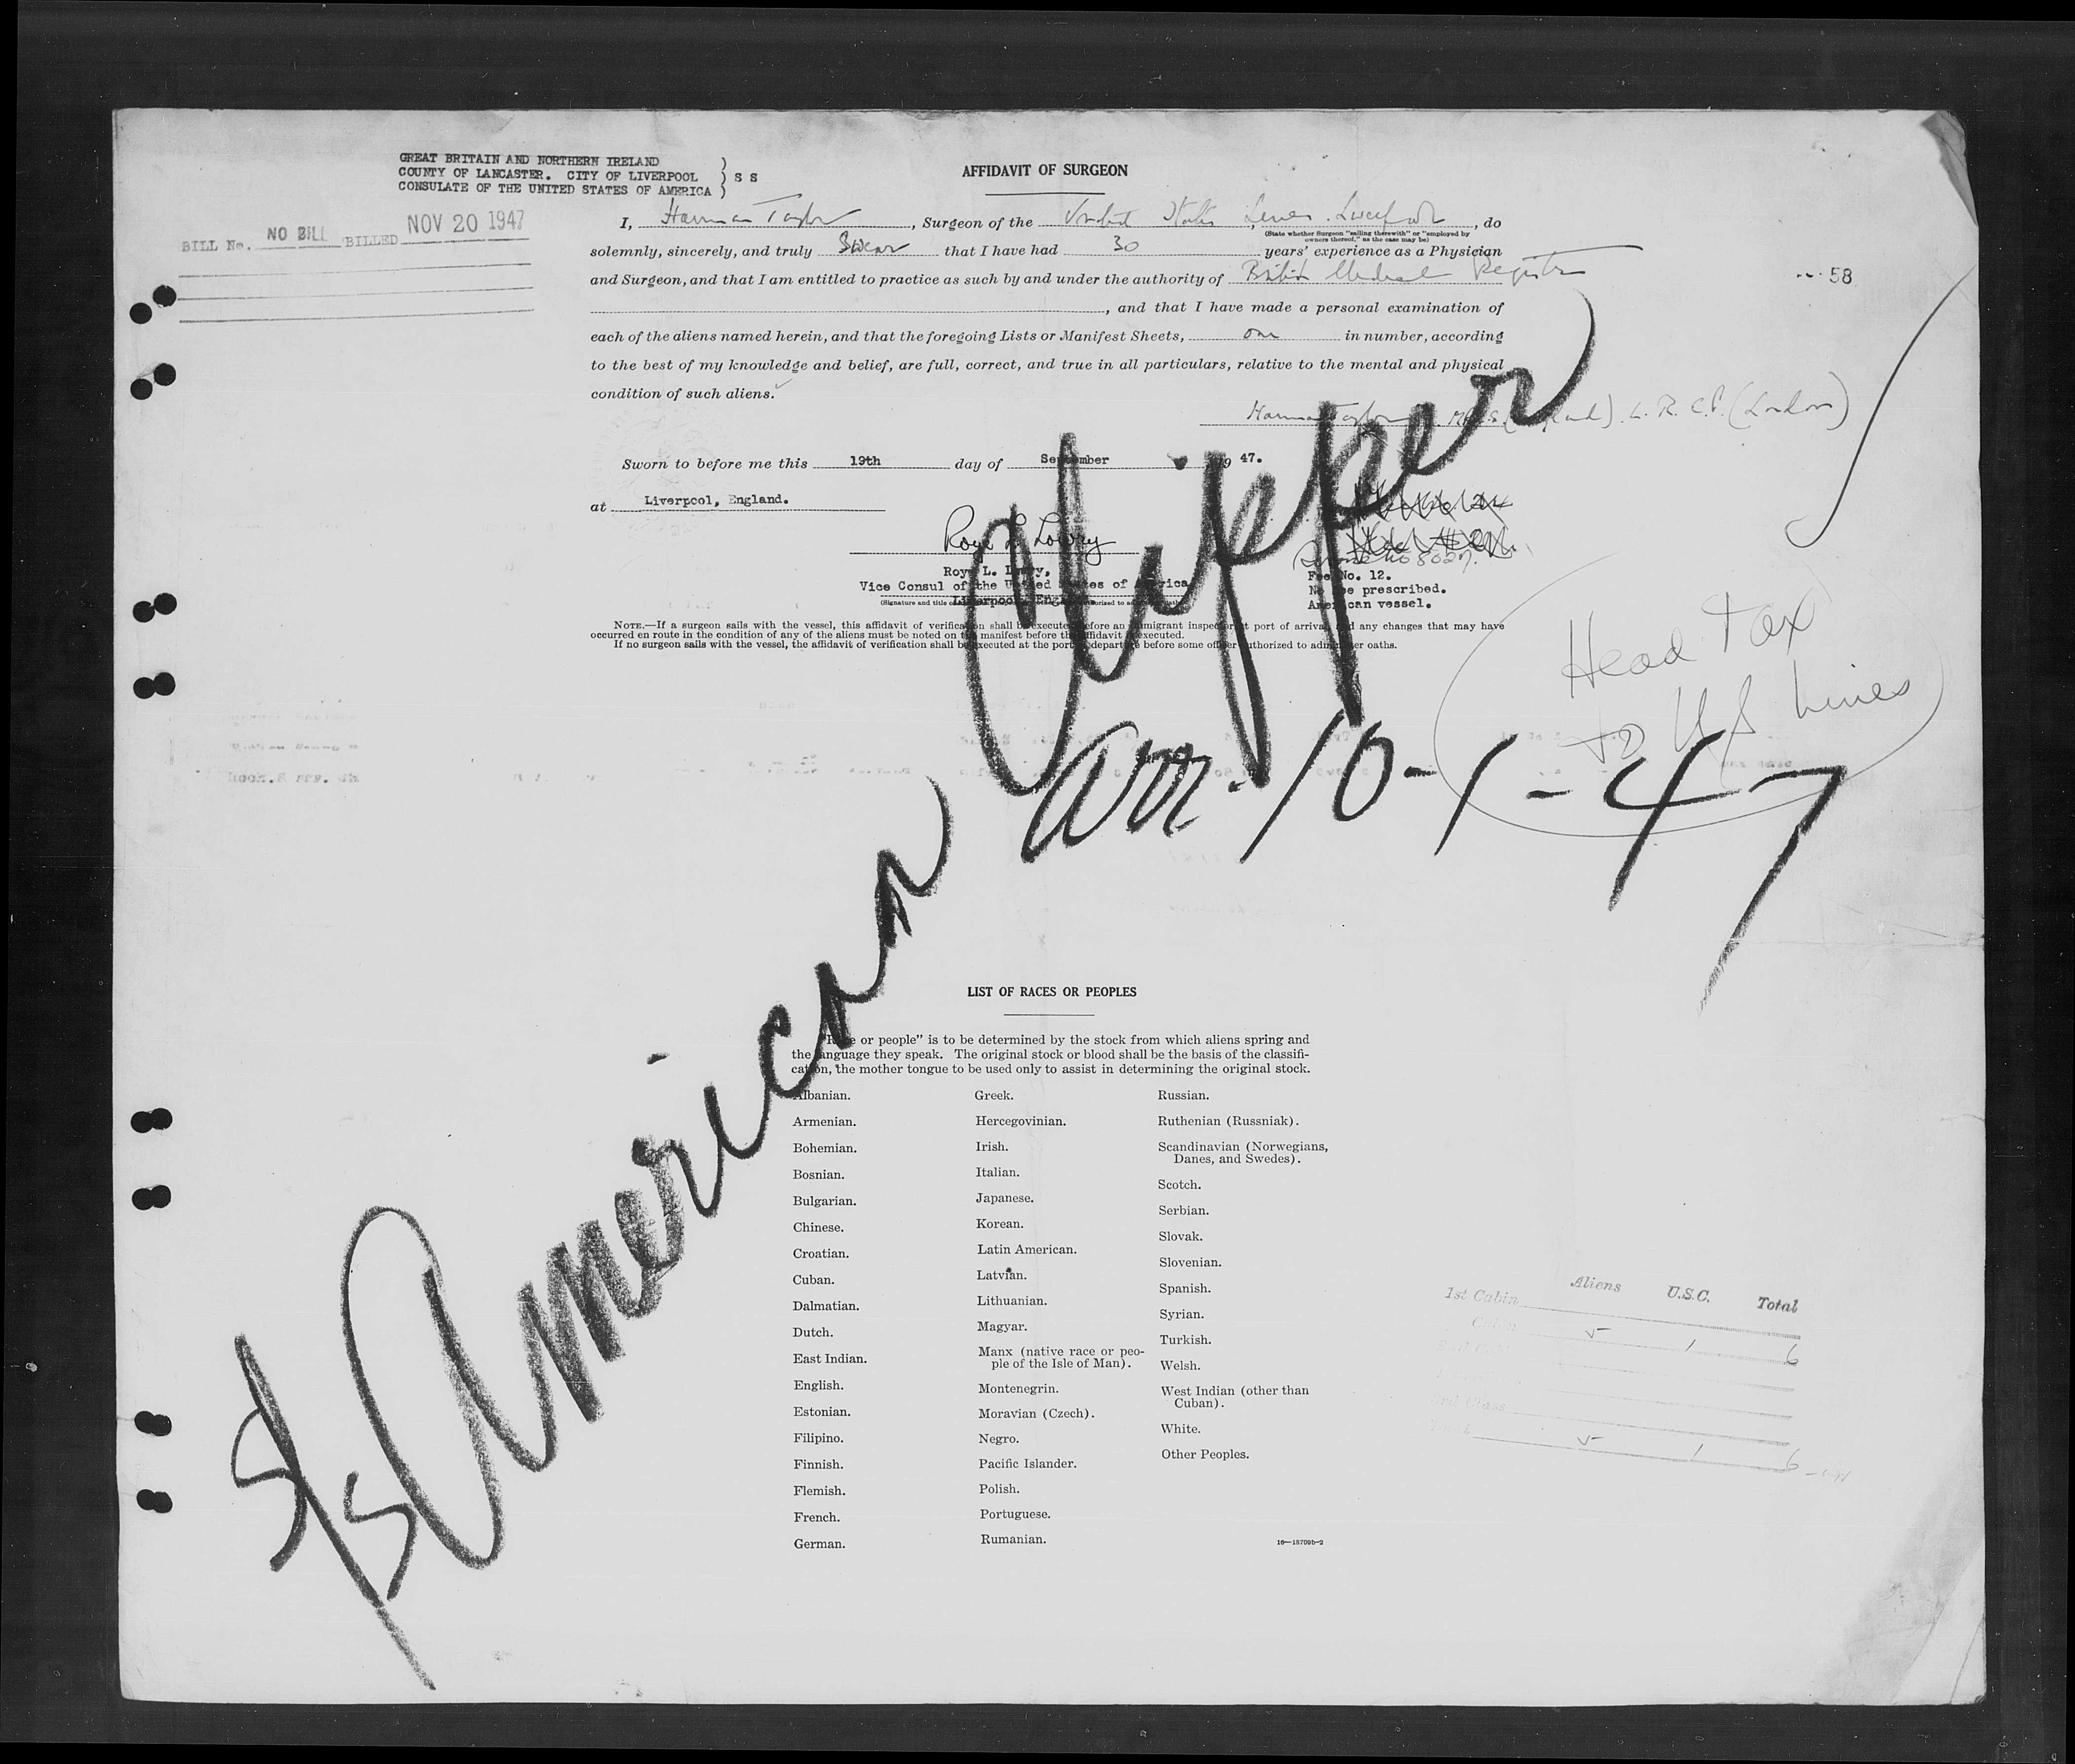 GREAT BRITAIN AND NORTHERN IRELAND )
COUNTY OF LANCASTER. CITY OF LIVERPOOL ) S S
CONSULATE OF THE UNITED STATES OF AMERICA )
AFFIDAVIT OF SURGEON
BILL No. NO BILL BILLED NOV 20 1947
I, Taylor, Surgeon of the United States Lines. Liverpool, do
(State whether Surgeon "sailing therewith" or "employed by
owners thereof," as the case may be)
solemnly, sincerely, and truly Swear that I have had 30 years' experience as a Physician
and Surgeon, and that I am entitled to practice as such by and under the authority of British Medical Register
58
, and that I have made a personal examination of
each of the aliens named herein, and that the foregoing Lists or Manifest Sheets, one in number, according
to the best of my knowledge and belief, are full, correct, and true in all particulars, relative to the mental and physical
condition of such aliens.
Taylor L. R. C. P. (London)
Sworn to before me this 19th day of September 19 47.
at Liverpool, England.
Roye L. Lowry
Roye L. Lowry,
Vice Consul of the United States of America
Liverpool, England
(Signature and title of officer authorized to administer oaths)
Service No 8027.
Fee No. 12.
No fee prescribed.
American vessel.
NOTE.—If a surgeon sails with the vessel, this affidavit of verification shall be executed before an immigrant inspector at port of arrival, and any changes that may have
occurred en route in the condition of any of the aliens must be noted on the manifest before the affidavit is executed.
If no surgeon sails with the vessel, the affidavit of verification shall be executed at the port of departure before some officer authorized to administer oaths.
Head Tax
to US Lines
S/S American Clipper
arr. 10-1-47
LIST OF RACES OR PEOPLES
"Race or people" is to be determined by the stock from which aliens spring and
the language they speak. The original stock or blood shall be the basis of the classifi-
cation, the mother tongue to be used only to assist in determining the original stock.
Albanian.
Armenian.
Bohemian.
Bosnian.
Bulgarian.
Chinese.
Croatian.
Cuban.
Dalmatian.
Dutch.
East Indian.
English.
Estonian.
Filipino.
Finnish.
Flemish.
French.
German.
Greek.
Hercegovinian.
Irish.
Italian.
Japanese.
Korean.
Latin American.
Latvian.
Lithuanian.
Magyar.
Manx (native race or peo-
ple of the Isle of Man).
Montenegrin.
Moravian (Czech).
Negro.
Pacific Islander.
Polish.
Portuguese.
Rumanian.
Russian.
Ruthenian (Russniak).
Scandinavian (Norwegians,
Danes, and Swedes).
Scotch.
Serbian.
Slovak.
Slovenian.
Spanish.
Syrian.
Turkish.
Welsh.
West Indian (other than
Cuban).
White.
Other Peoples.
16—18709b-2
Aliens U.S.C. Total
1st Cabin
Cabin 5 1 6
3rd Class
Total 5 1 6